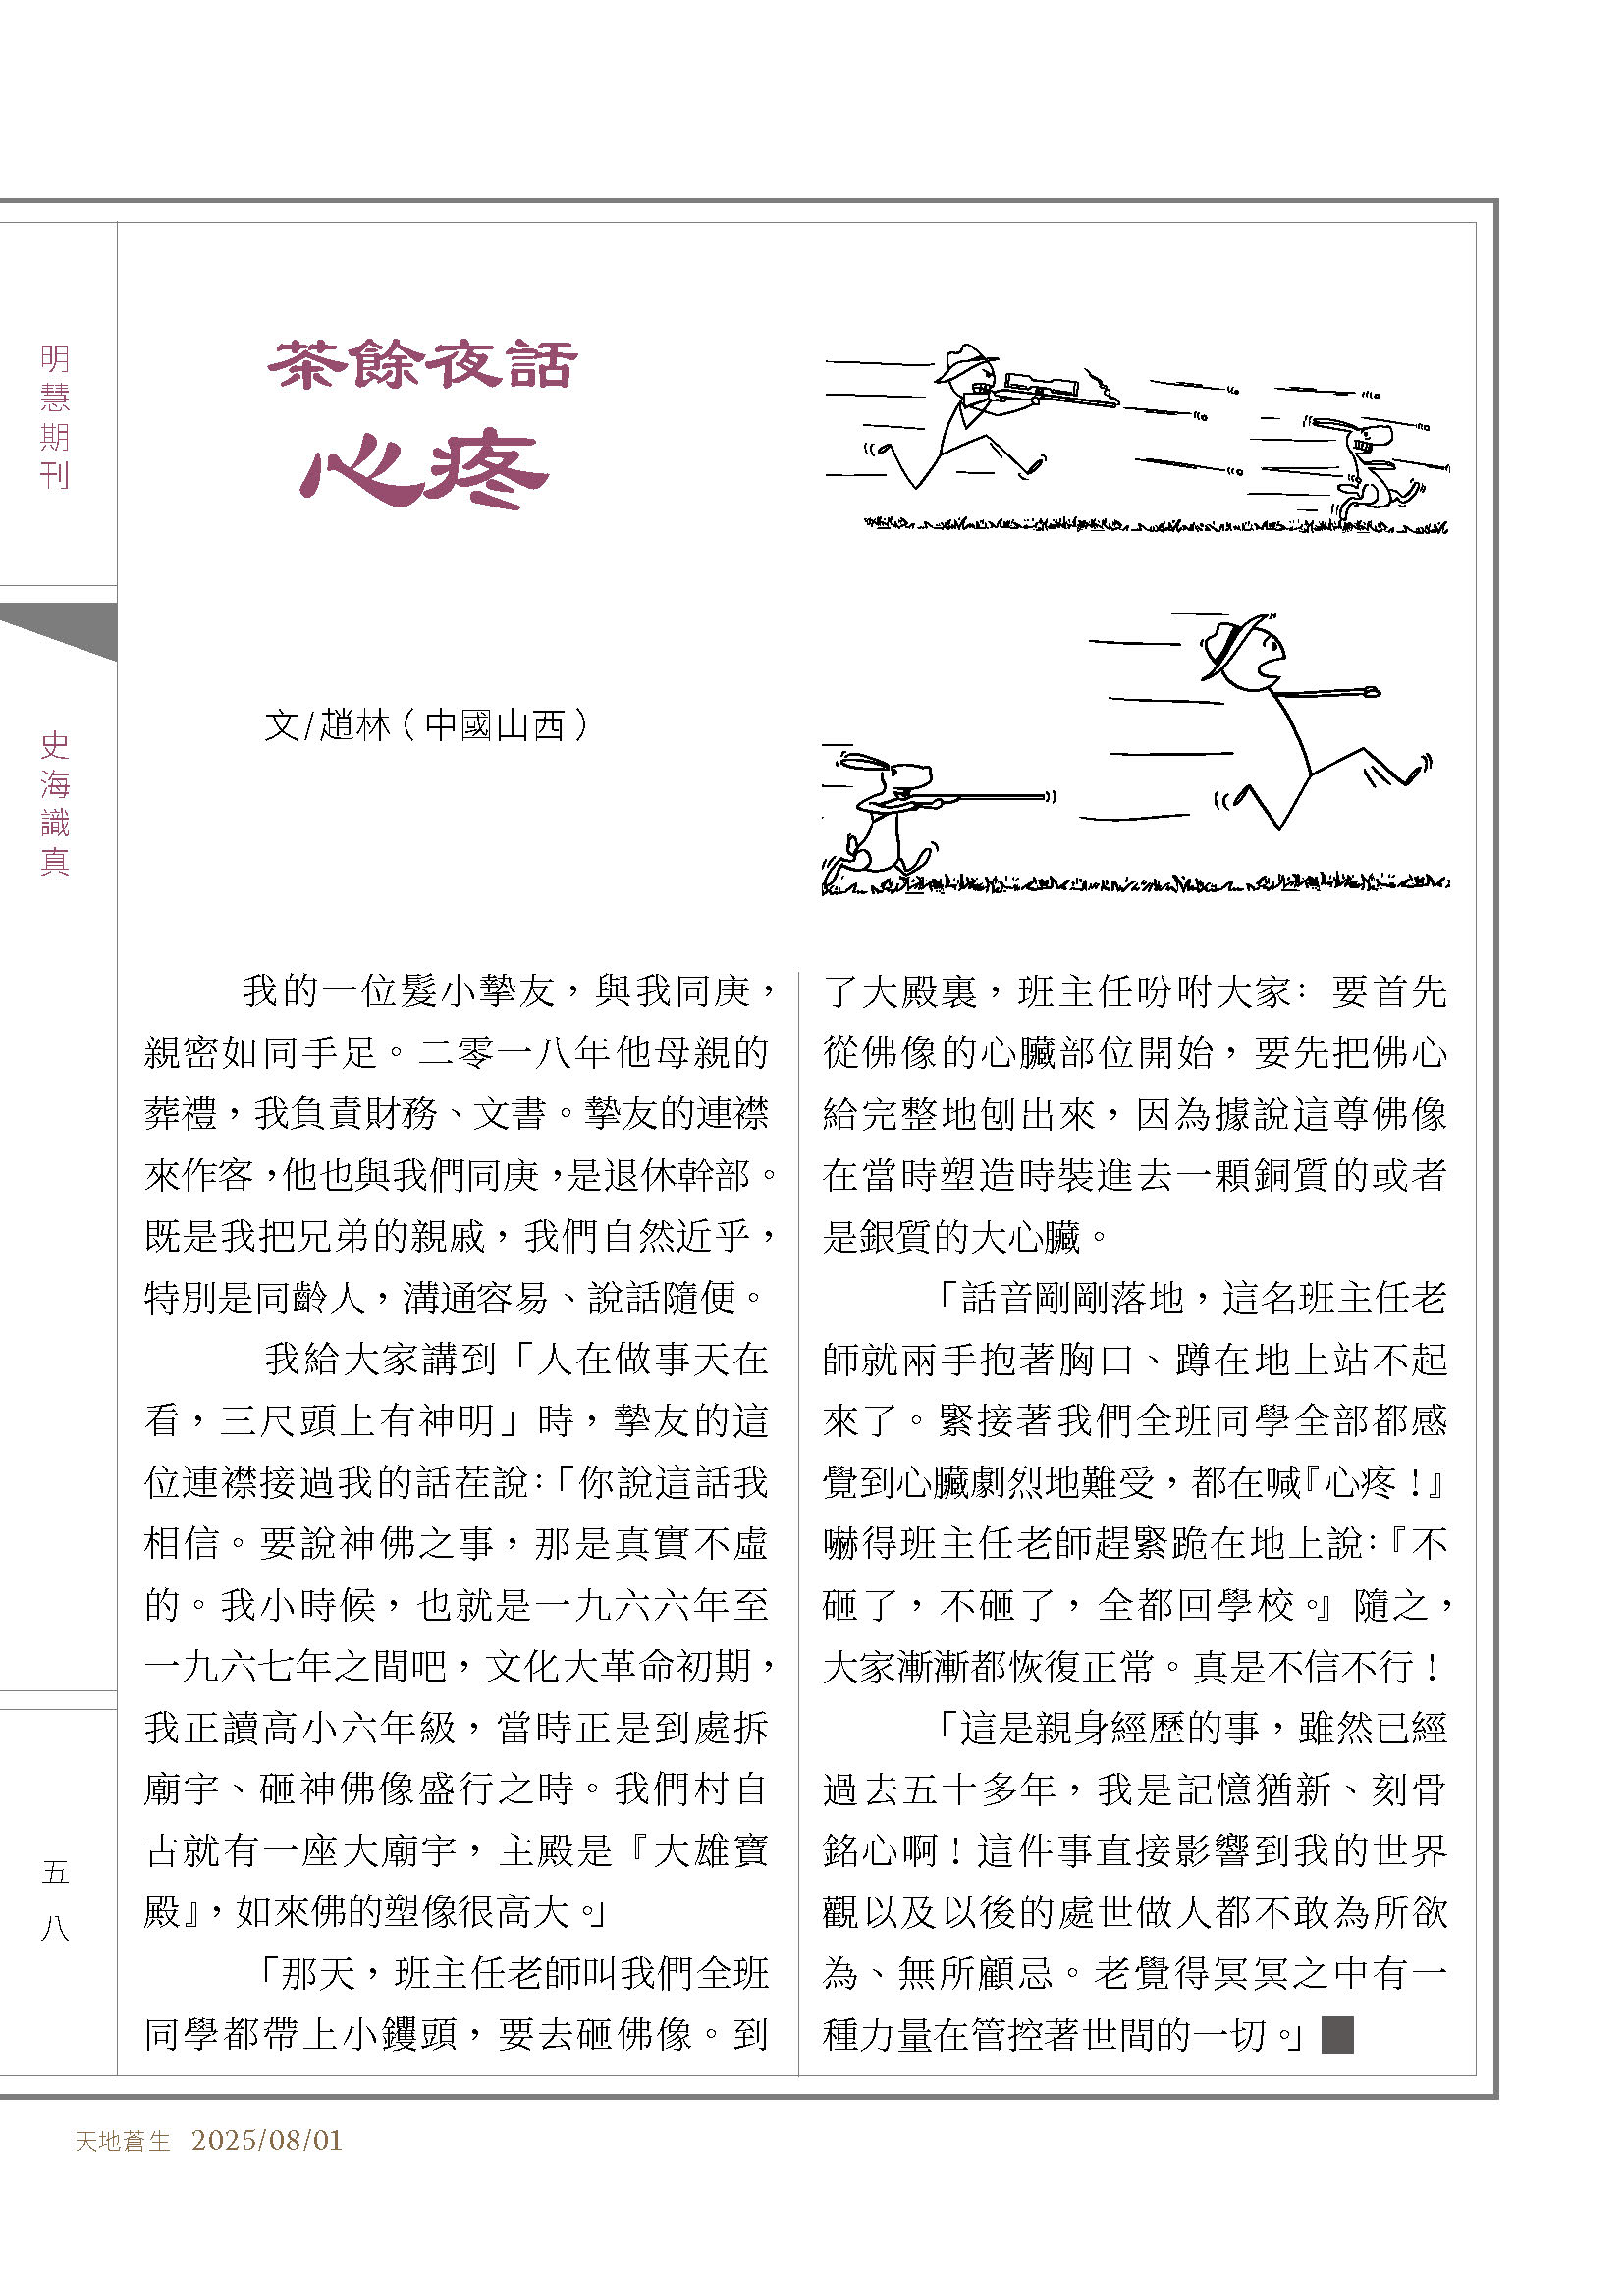 明慧期刊
史海識真
五八
茶餘夜話
心疼
文/趙林（中國山西）
我的一位髮小摯友，與我同庚，
親密如同手足。二零一八年他母親的
葬禮，我負責財務、文書。摯友的連襟
來作客，他也與我們同庚，是退休幹部。
既是我把兄弟的親戚，我們自然近乎，
特別是同齡人，溝通容易、說話隨便。
我給大家講到「人在做事天在
看，三尺頭上有神明」時，摯友的這
位連襟接過我的話茬說：「你說這話我
相信。要說神佛之事，那是真實不虛
的。我小時候，也就是一九六六年至
一九六七年之間吧，文化大革命初期，
我正讀高小六年級，當時正是到處拆
廟宇、砸神佛像盛行之時。我們村自
古就有一座大廟宇，主殿是『大雄寶
殿』，如來佛的塑像很高大。」
「那天，班主任老師叫我們全班
同學都帶上小钁頭，要去砸佛像。到
了大殿裏，班主任吩咐大家：要首先
從佛像的心臟部位開始，要先把佛心
給完整地刨出來，因為據說這尊佛像
在當時塑造時裝進去一顆銅質的或者
是銀質的大心臟。
「話音剛剛落地，這名班主任老
師就兩手抱著胸口、蹲在地上站不起
來了。緊接著我們全班同學全部都感
覺到心臟劇烈地難受，都在喊『心疼！』
嚇得班主任老師趕緊跪在地上說：『不
砸了，不砸了，全都回學校。』隨之，
大家漸漸都恢復正常。真是不信不行！
「這是親身經歷的事，雖然已經
過去五十多年，我是記憶猶新、刻骨
銘心啊！這件事直接影響到我的世界
觀以及以後的處世做人都不敢為所欲
為、無所顧忌。老覺得冥冥之中有一
種力量在管控著世間的一切。」
天地蒼生 2025/08/01